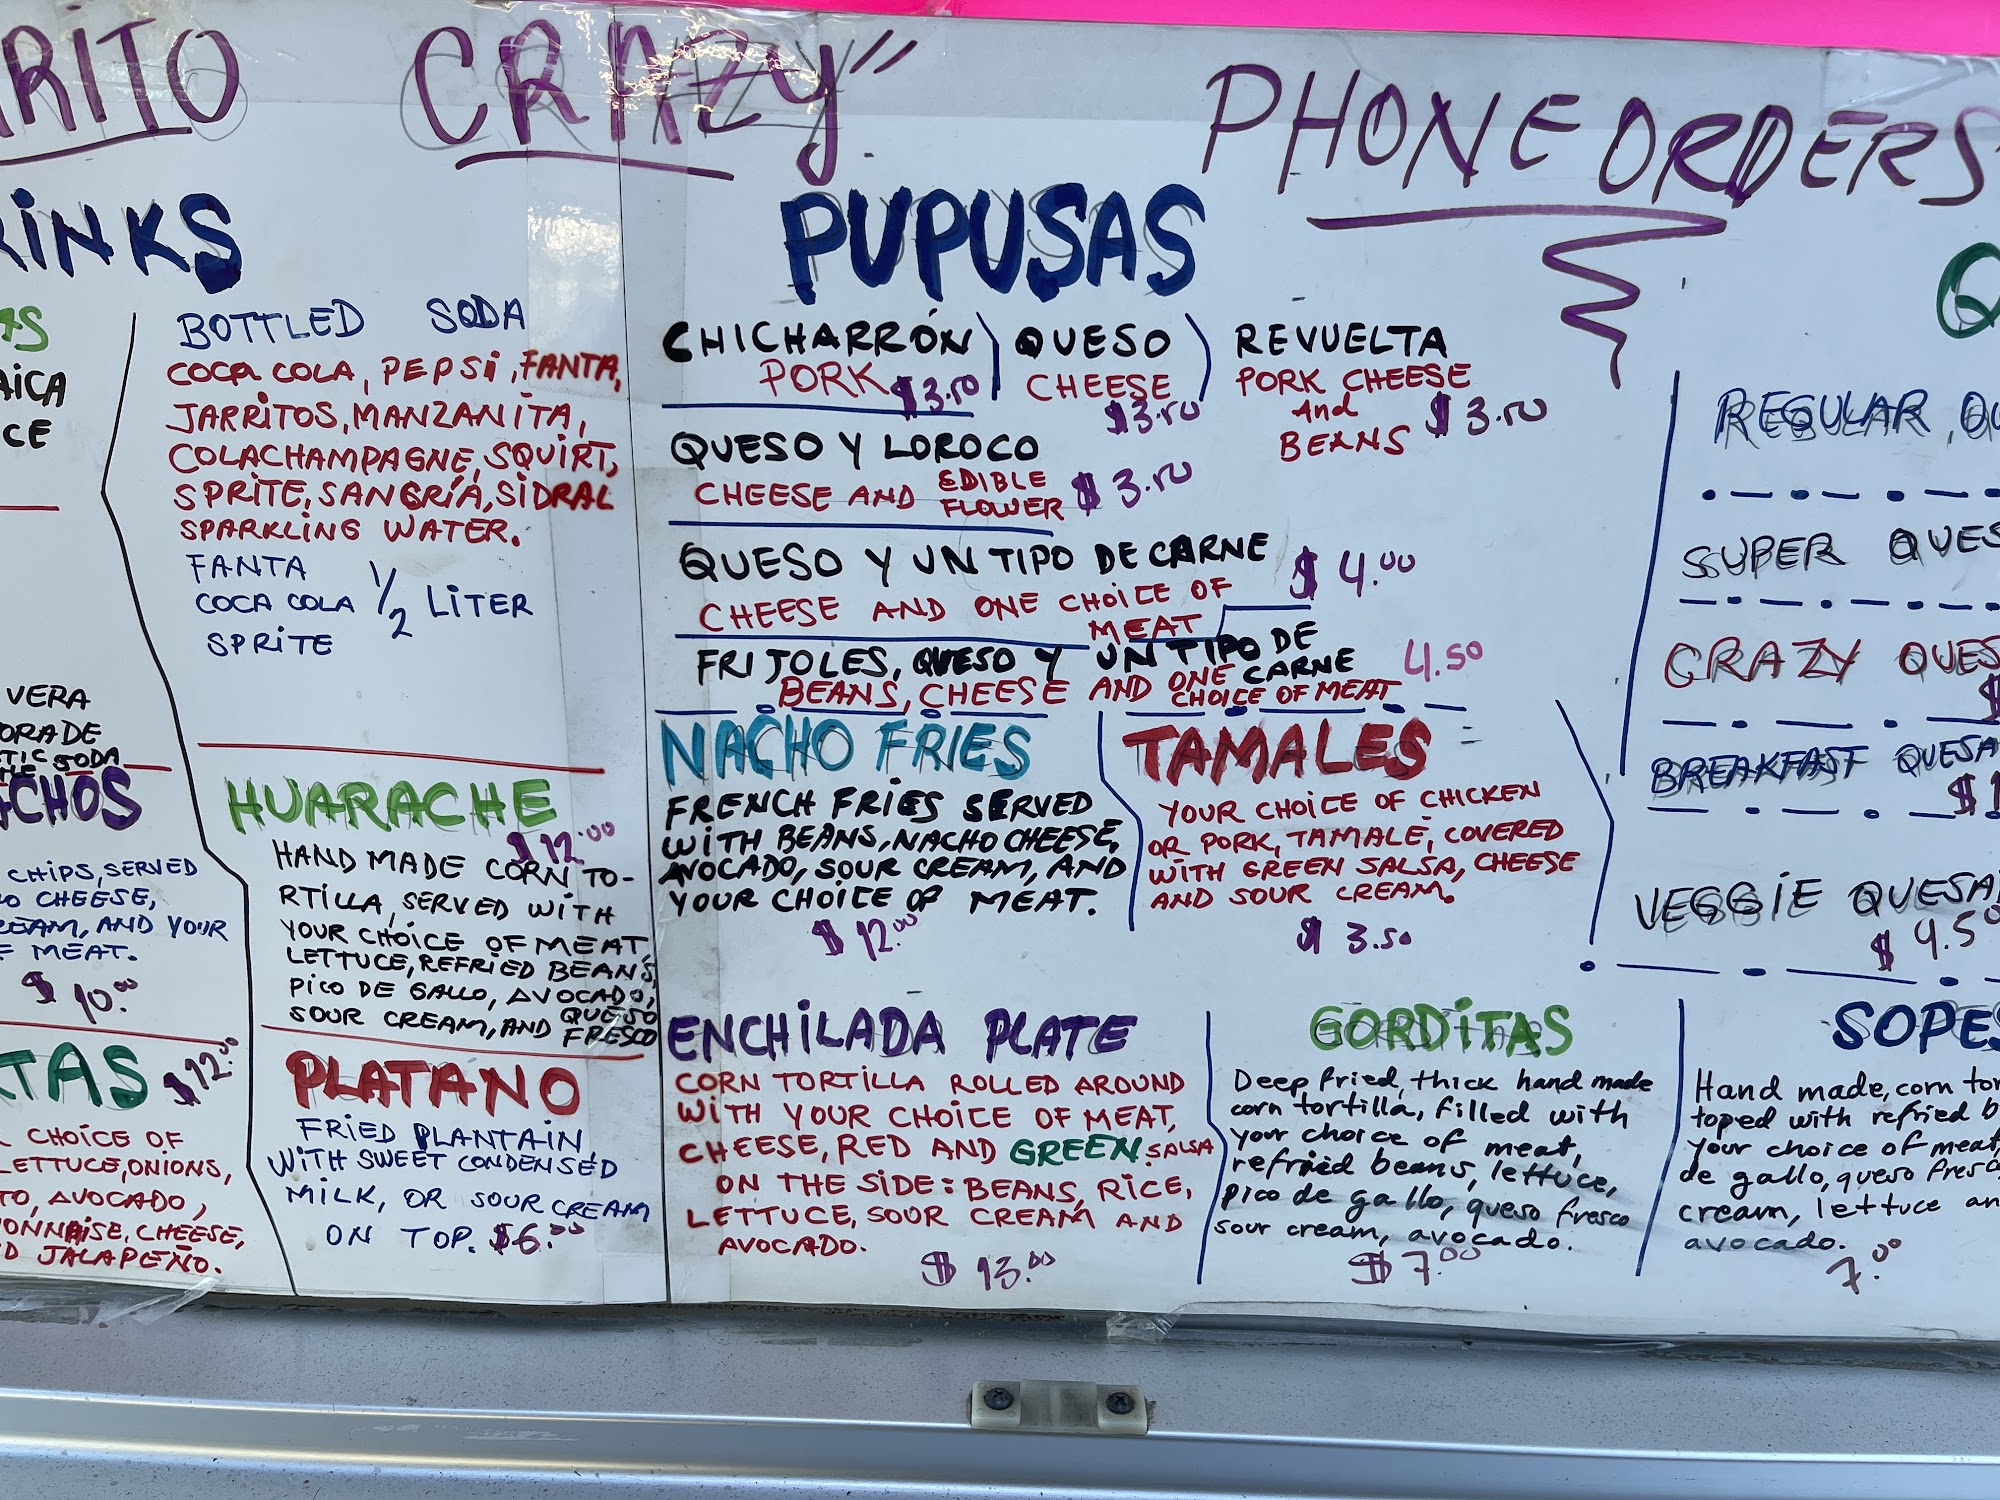 RITO CRAZY"
PHONE ORDERS
RINKS
AS
AICA
CE
VERA
ORADE
TIC SODA
BOTTLED SODA
COCA COLA, PEPSI, FANTA,
JARRITOS, MANZANITA,
COLACHAMPAGNE, SQUIRT,
SPRITE, SANGRÍA, SIDRAL
SPARKLING WATER.
FANTA
COCA COLA 1/2 LITER
SPRITE
ACHOS
CHIPS, SERVED
O CHEESE,
REAM, AND YOUR
F MEAT.
$10.00
TAS $12.00
CHOICE OF
LETTUCE, ONIONS,
TO, AVOCADO,
YONNAISE, CHEESE,
D JALAPEÑO.
HUARACHE
$12.00
HAND MADE CORN TO-
RTILLA, SERVED WITH
YOUR CHOICE OF MEAT,
LETTUCE, REFRIED BEANS,
PICO DE GALLO, AVOCADO,
SOUR CREAM, AND QUESO
FRESCO
PLATANO
FRIED PLANTAIN
WITH SWEET CONDENSED
MILK, OR SOUR CREAM
ON TOP. $6.00
PUPUSAS
CHICHARRÓN
PORK $3.50
QUESO
CHEESE
$3.50
REVUELTA
PORK CHEESE
And
BEANS $3.50
QUESO Y LOROCO
CHEESE AND EDIBLE
FLOWER $3.50
QUESO Y UN TIPO DE CARNE $4.00
CHEESE AND ONE CHOICE OF
MEAT
FRIJOLES, QUESO Y UN TIPO DE
CARNE 4.50
BEANS, CHEESE AND ONE
CHOICE OF MEAT
NACHO FRIES
FRENCH FRIES SERVED
WITH BEANS, NACHO CHEESE,
AVOCADO, SOUR CREAM, AND
YOUR CHOICE OF MEAT.
$12.00
TAMALES
YOUR CHOICE OF CHICKEN
OR PORK, TAMALE, COVERED
WITH GREEN SALSA, CHEESE
AND SOUR CREAM.
$3.50
ENCHILADA PLATE
CORN TORTILLA ROLLED AROUND
WITH YOUR CHOICE OF MEAT,
CHEESE, RED AND GREEN SALSA
ON THE SIDE: BEANS, RICE,
LETTUCE, SOUR CREAM AND
AVOCADO.
$13.00
GORDITAS
Deep fried, thick hand made
corn tortilla, filled with
your choice of meat,
refried beans, lettuce,
pico de gallo, queso fresco
sour cream, avocado.
$7.00
Q
REGULAR QU
SUPER QUES
CRAZY QUES
$
BREAKFAST QUESA
$1
VEGGIE QUESA
$4.50
SOPES
Hand made, corn tor
toped with refried b
your choice of meat,
de gallo, queso fresc
cream, lettuce an
avocado.
7.00